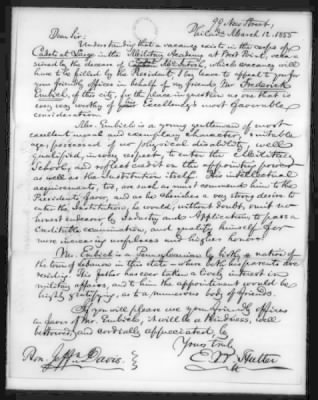 99 New Street,
Philada. March 12. 1855
Dear Sir:
Understanding that a vacancy exists in the corps of
Cadets at Large in the Military Academy at West Point, occa-
sioned by the decease of Cadet McIntosh, which vacancy will
have to be filled by the President I beg leave to appeal to you for
your friendly offices in behalf of my friend Mr Frederick
Embich, of this city, for the place in question as one that is
very very worthy of your Excellency's most favorable
consideration.
Mr. Embich is a young gentleman of most
excellent moral and exemplary character, of suitable
age, possessed of no physical disability, well
qualified, in every respect, to enter the Military
School, and reflect credit on the appointing power
as well as the Institution itself. His intellectual
acquirements, too, are such as must commend him to the
President's favor, and as he cherishes a very strong desire to
enter the Institution, he would, without doubt, make
honest endeavor by Industry and Application to pass a
creditable examination, and qualify himself for
more increasing usefulness and higher honors.
Mr. Embich is a Pennsylvanian by birth, a native of
the town of Lebanon in this state, where both his parents are
residing. His father has ever taken a lively interest in
military affairs, and to him the appointment would be
highly gratifying, as to a numerous body of friends.
If you will please use your friendly offices
in favor of Mr. Embich, it will be a kindness, well
bestowed, and cordially appreciated by
Yours truly
E. W. Hutter
Hon. Jeff'n Davis.